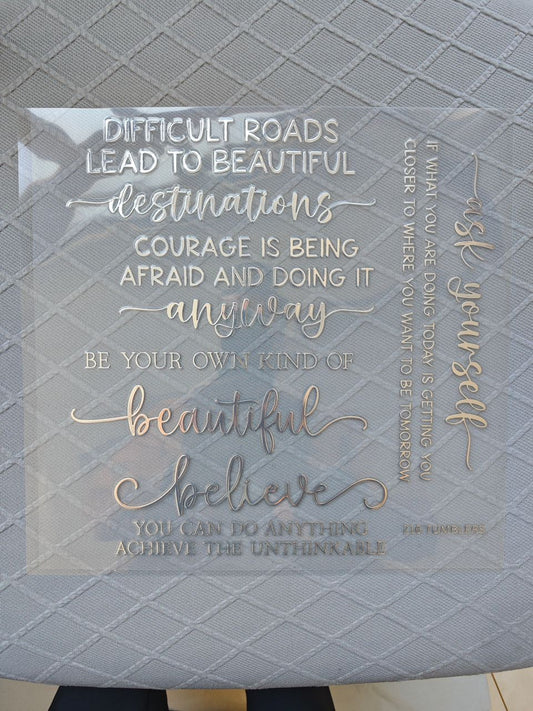 DIFFICULT ROADS
LEAD TO BEAUTIFUL
destinations
COURAGE IS BEING
AFRAID AND DOING IT
anyway
BE YOUR OWN KIND OF
beautiful
believe
YOU CAN DO ANYTHING
ACHIEVE THE UNTHINKABLE
ask yourself
IF WHAT YOU ARE DOING TODAY IS GETTING YOU
CLOSER TO WHERE YOU WANT TO BE TOMORROW
TUMBLERS